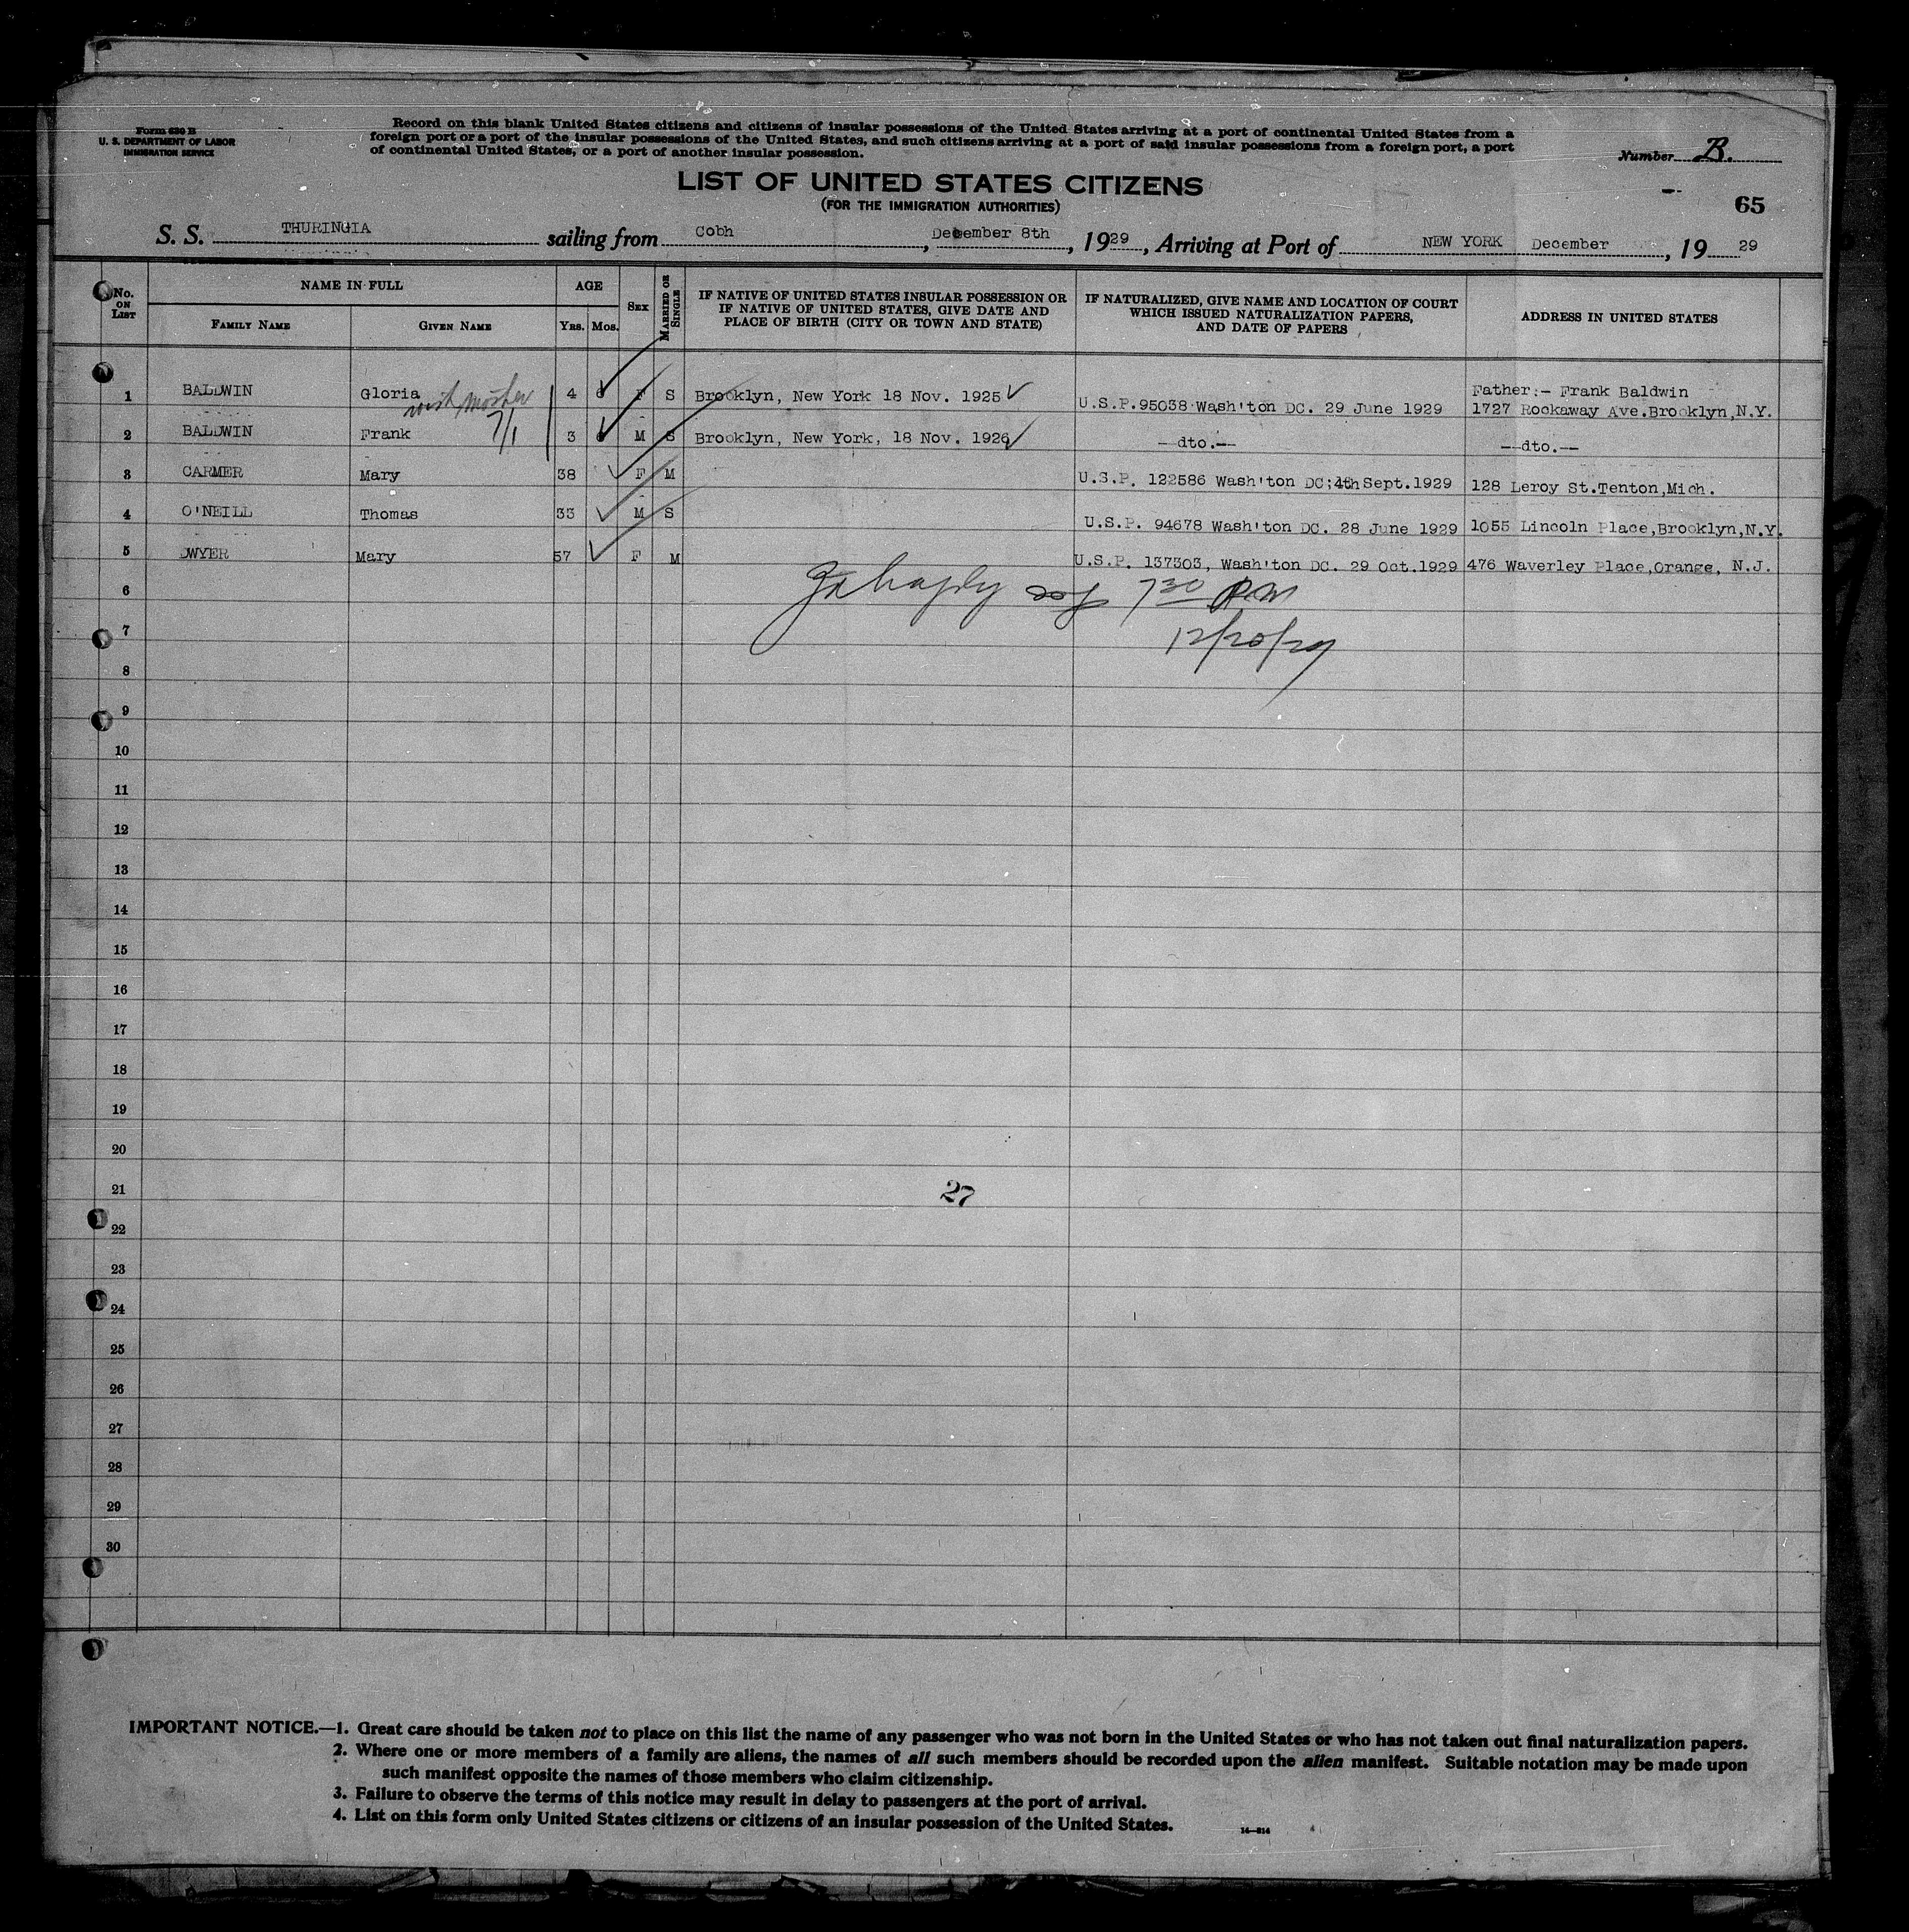 Form 630 B
U. S. DEPARTMENT OF LABOR
IMMIGRATION SERVICE
Record on this blank United States citizens and citizens of insular possessions of the United States arriving at a port of continental United States from a
foreign port or a port of the insular possessions of the United States, and such citizens arriving at a port of said insular possessions from a foreign port, a port
of continental United States, or a port of another insular possession.
Number B.
LIST OF UNITED STATES CITIZENS
(FOR THE IMMIGRATION AUTHORITIES)
65
S. S. THURINGIA sailing from Cobh, December 8th, 1929, Arriving at Port of NEW YORK December, 19 29
No. ON LIST
NAME IN FULL
FAMILY NAME
GIVEN NAME
AGE
YRS. MOS.
SEX
MARRIED OR SINGLE
IF NATIVE OF UNITED STATES INSULAR POSSESSION OR
IF NATIVE OF UNITED STATES, GIVE DATE AND
PLACE OF BIRTH (CITY OR TOWN AND STATE)
IF NATURALIZED, GIVE NAME AND LOCATION OF COURT
WHICH ISSUED NATURALIZATION PAPERS,
AND DATE OF PAPERS
ADDRESS IN UNITED STATES
1 BALDWIN Gloria 4 F S Brooklyn, New York 18 Nov. 1925 U.S.P.95038 Wash'ton DC. 29 June 1929 Father:- Frank Baldwin
1727 Rockaway Ave.Brooklyn,N.Y.
with mother
7/1
2 BALDWIN Frank 3 M S Brooklyn, New York, 18 Nov. 1926 --dto.-- --dto.--
3 CARMER Mary 38 F M U.S.P. 122586 Wash'ton DC;4th Sept.1929 128 Leroy St.Tenton,Mich.
4 O'NEILL Thomas 33 M S U.S.P. 94678 Wash'ton DC. 28 June 1929 1055 Lincoln Place,Brooklyn,N.Y.
5 DWYER Mary 57 F M U.S.P. 137303, Wash'ton DC. 29 Oct.1929 476 Waverley Place,Orange, N.J.
6
7 30 PM
7
12/20/29
8
9
10
11
12
13
14
15
16
17
18
19
20
21
27
22
23
24
25
26
27
28
29
30
IMPORTANT NOTICE.—1. Great care should be taken not to place on this list the name of any passenger who was not born in the United States or who has not taken out final naturalization papers.
2. Where one or more members of a family are aliens, the names of all such members should be recorded upon the alien manifest. Suitable notation may be made upon
such manifest opposite the names of those members who claim citizenship.
3. Failure to observe the terms of this notice may result in delay to passengers at the port of arrival.
4. List on this form only United States citizens or citizens of an insular possession of the United States.
14—814